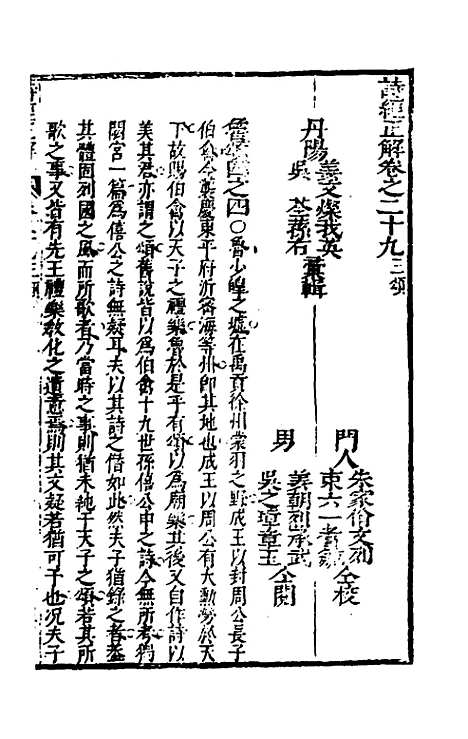 詩經正解卷之二十九 三頌
丹陽 姜文燦我英 吳荃蓀右 彙輯
門人 朱家俗文列 束六一 仝校
男 姜朝烈承武 吳之璋章玉 仝閱
魯頌四之四○魯少皡之墟在禹貢徐州蒙羽之野成王以封周公長子
伯禽今襲慶東平府沂密海等州即其地也成王以周公有大勳勞於天
下故賜伯禽以天子之禮樂魯於是乎有頌以為廟樂其後又自作詩以
美其君亦謂之頌舊說皆以為伯禽十九世孫僖公申之詩今無所考獨
閟宮一篇為僖公之詩無疑耳夫以其詩之僭如此然夫子猶錄之者蓋
其體固列國之風而所歌者乃當時之事則猶未純于天子之頌若其所
歌之事又皆有先王禮樂教化之遺意焉則其文疑若猶可予也況夫子